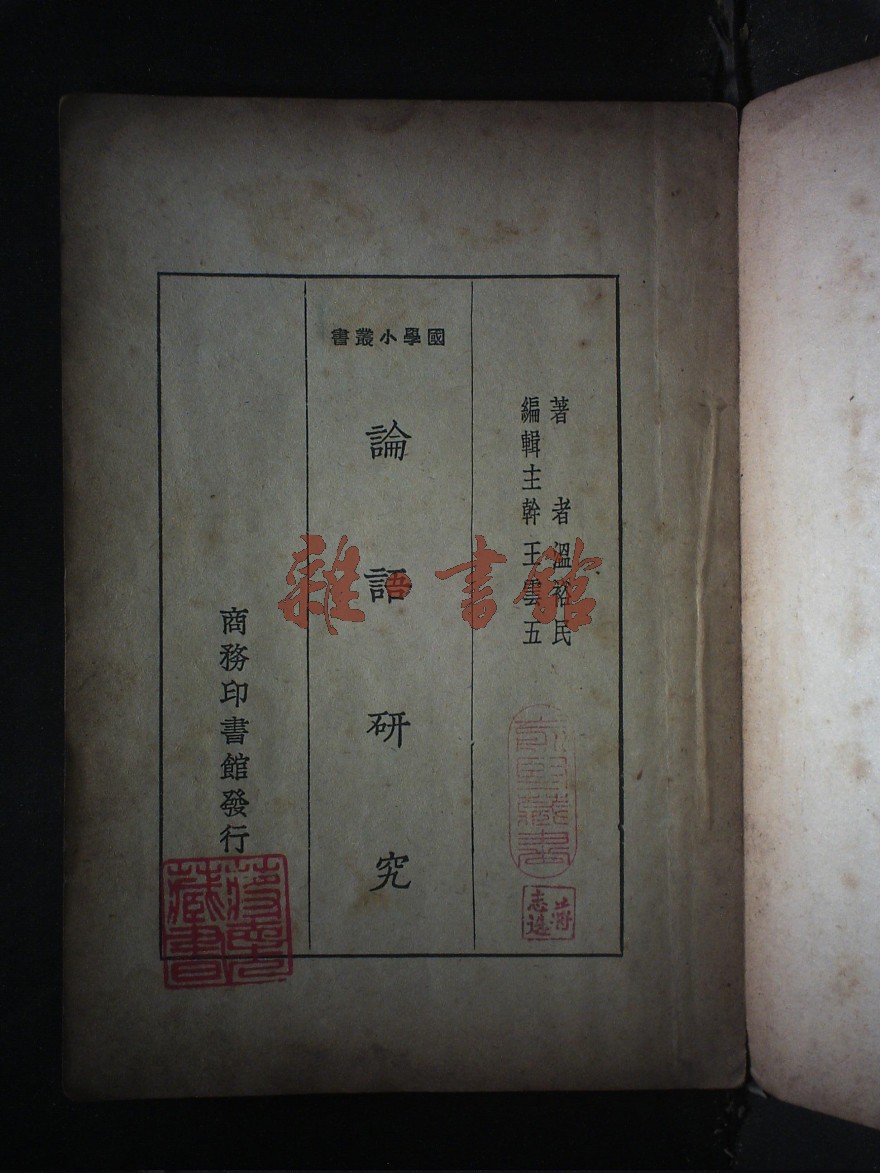 著者溫裕民
編輯主幹王雲五
國學小叢書
論語研究
商務印書館發行
雜·書館
藏書